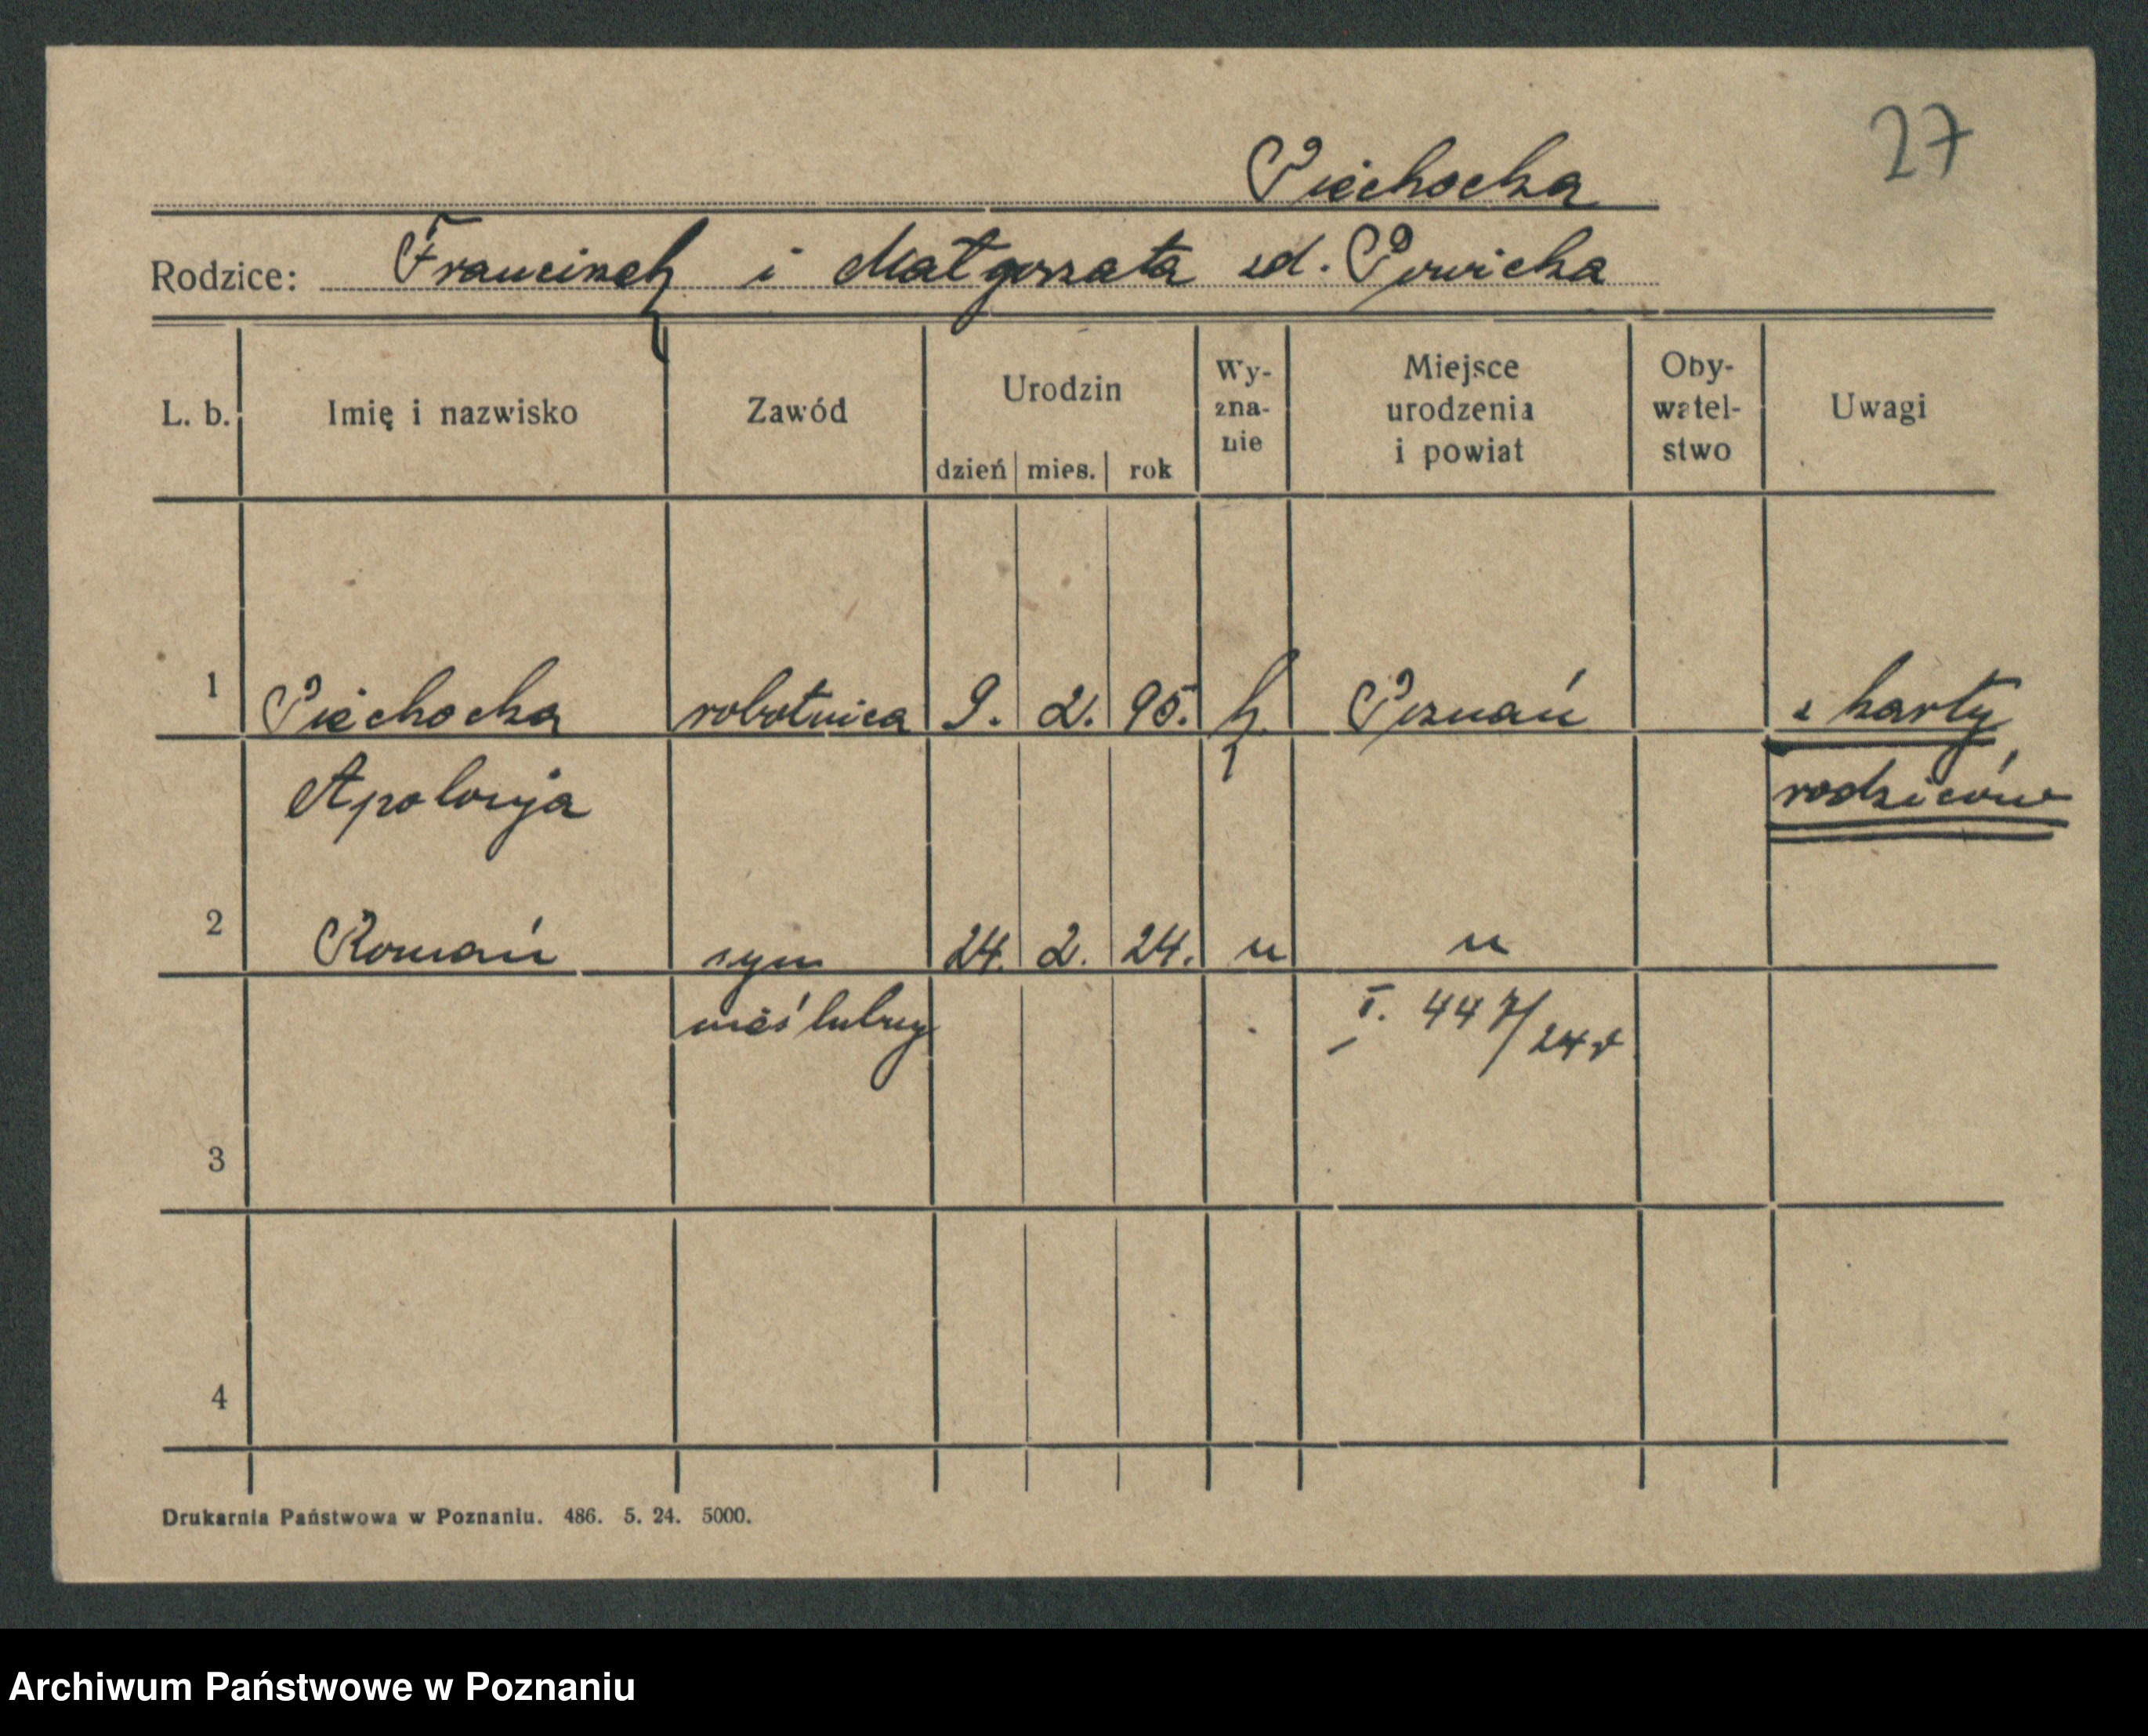 27
Piechocka
Rodzice: Franciszek i Małgorzata zd.
L. b. Imię i nazwisko Zawód Urodzin dzień mies. rok Wyznanie Miejsce urodzenia i powiat Obywatelstwo Uwagi
1 Piechocka robotnica 9. 2. 95. k. Poznań z karty
Apolonja rodziców
2 Roman syn 24. 2. 24. " "
nieślubny I. 447/24
3
4
Drukarnia Państwowa w Poznaniu. 486. 5. 24. 5000.
Archiwum Państwowe w Poznaniu